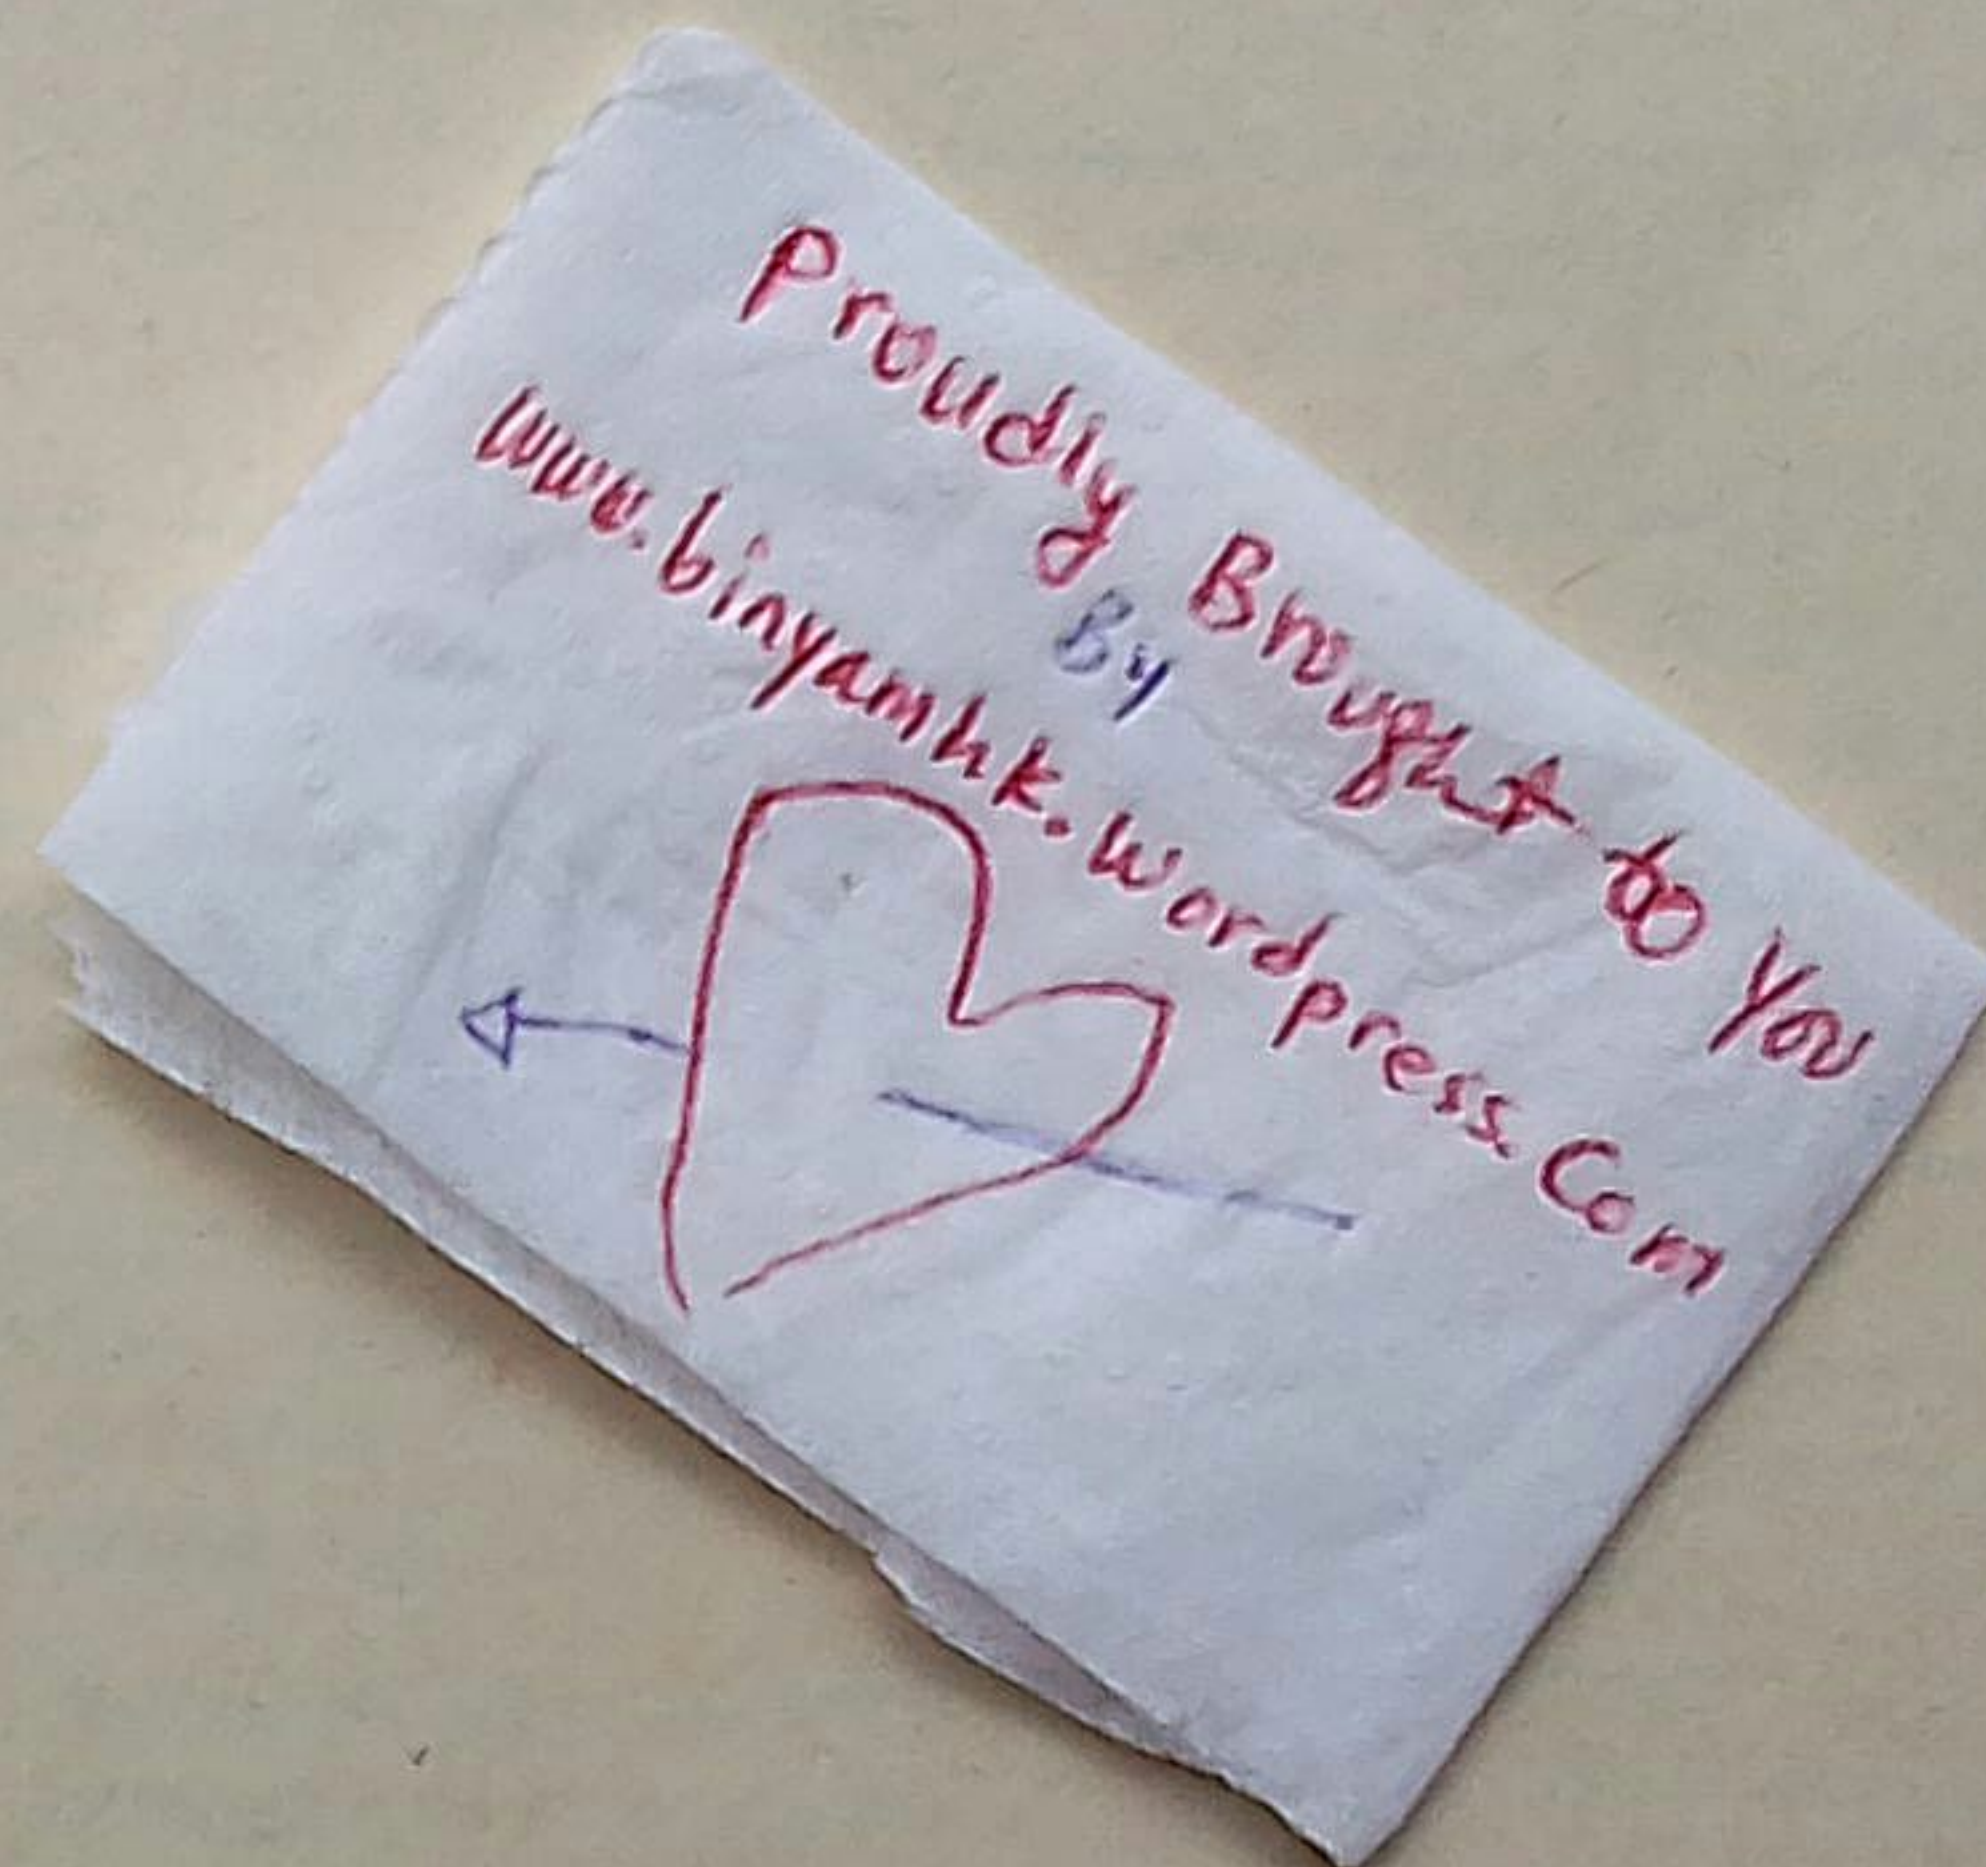 Proudly Brought to You
By
www.binyamhk.wordpress.com